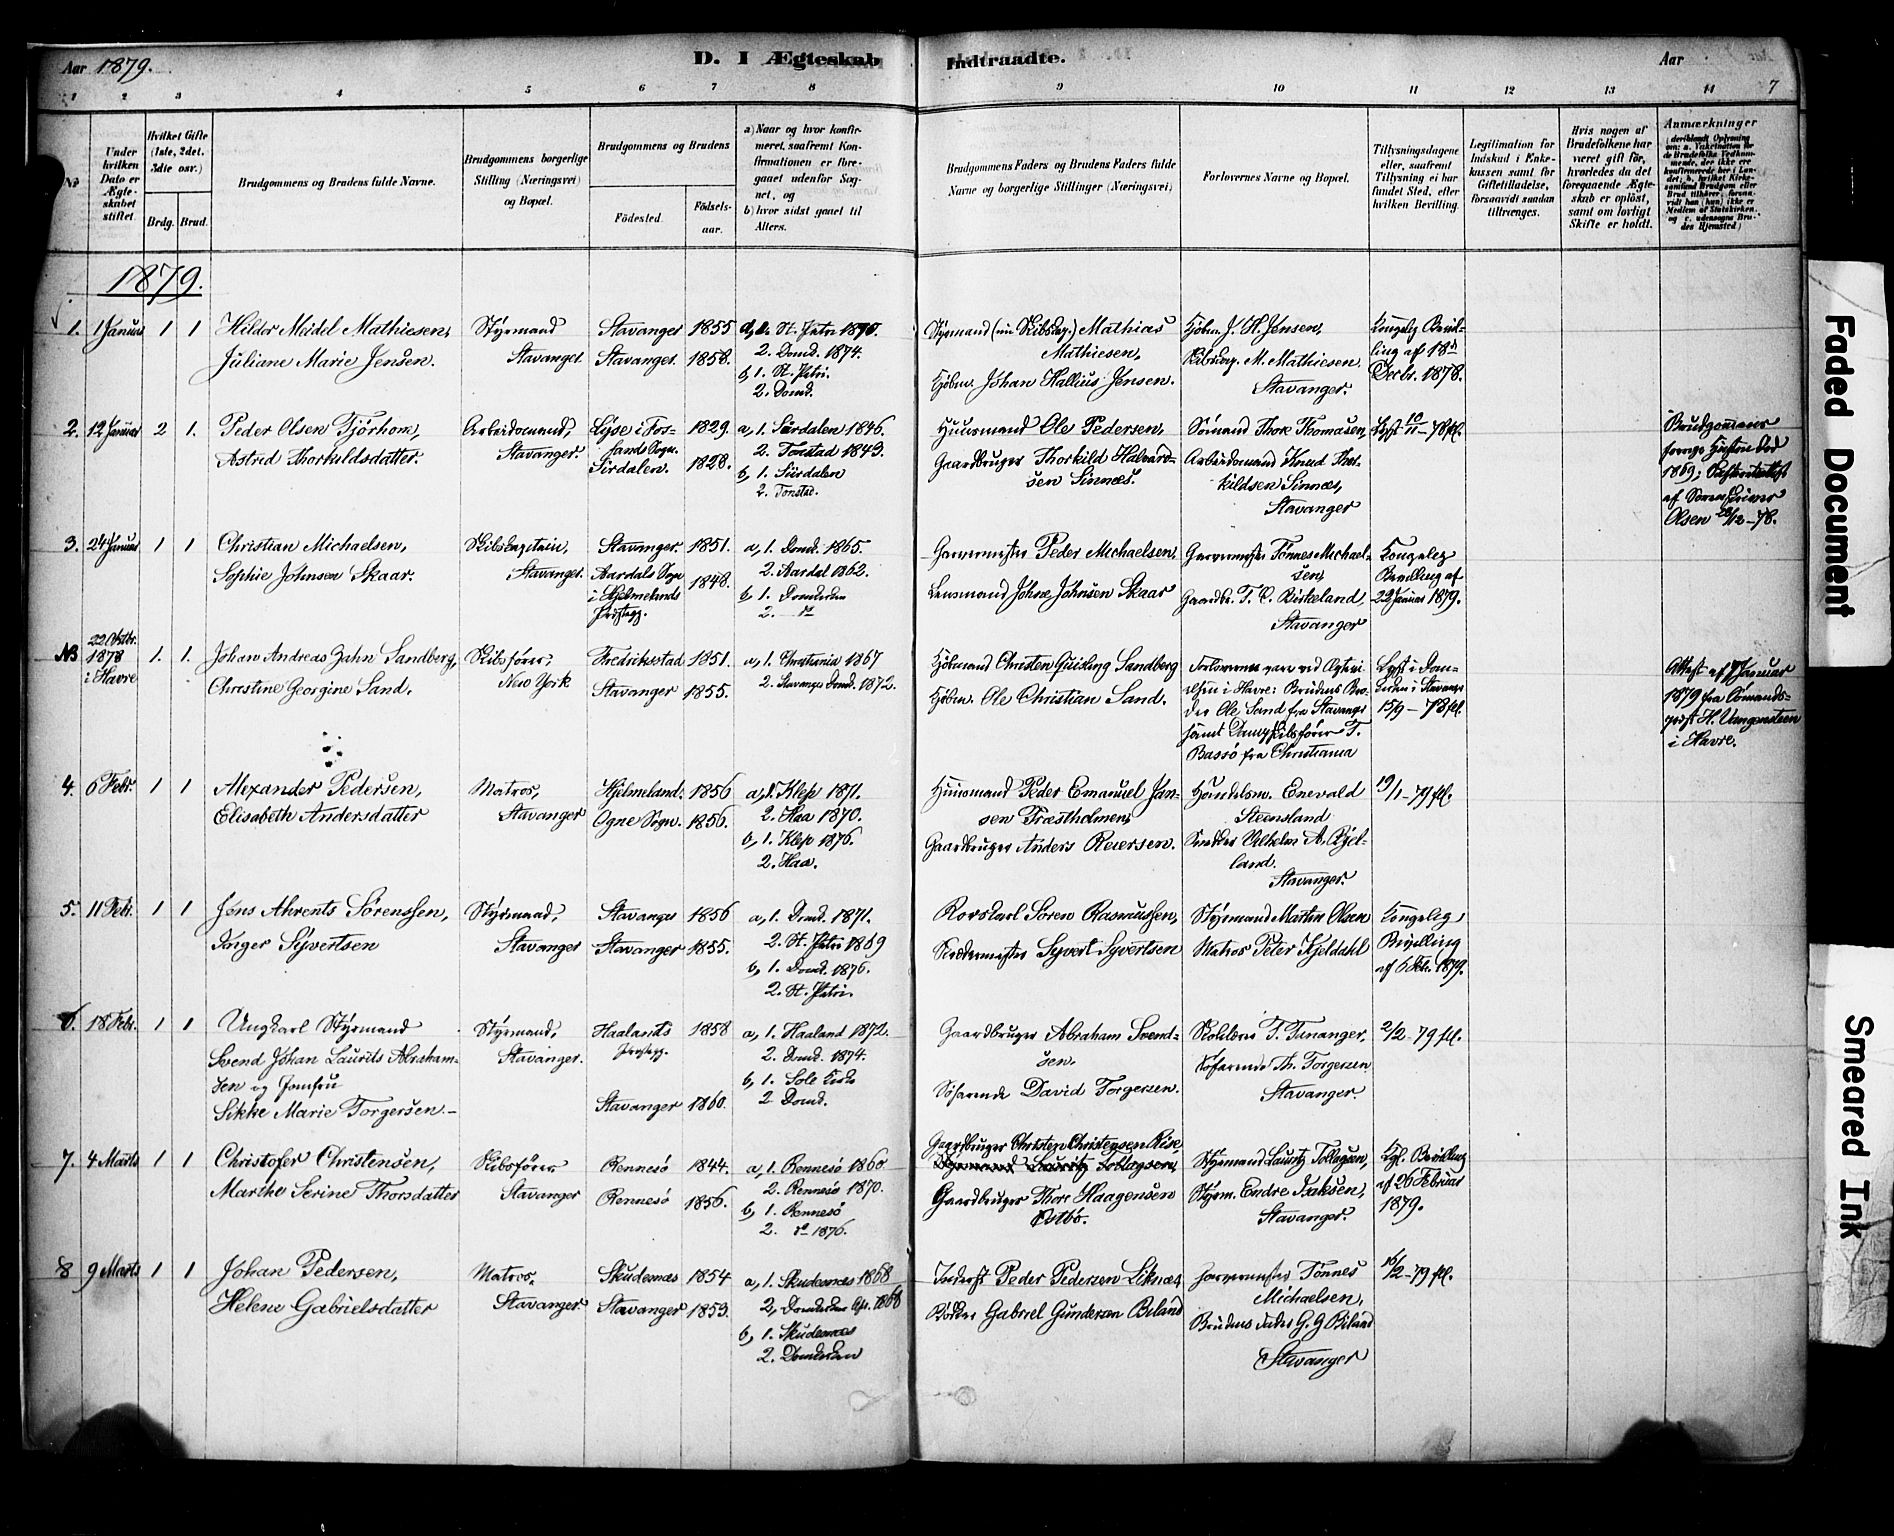 Aar 1879.
D. I Ægteskab Indtraadte.
Aar
7
1 2 3 4 5 6 7 8 9 10 11 12 13 14
No
Under hvilken Dato er Ægteskabet stiftet.
Hvilket Gifte (1ste, 2det, 3die osv.)
Brdg. Brud.
Brudgommens og Brudens fulde Navne.
Brudgommens borgerlige Stilling (Næringsvei) og Bopæl.
Brudgommens og Brudens
Födested. Födselsaar.
a) Naar og hvor konfirmeret, saafremt Konfirmationen er foregaaet udenfor Sognet, og
b) hvor sidst gaaet til Alters.
Brudgommens Faders og Brudens Faders fulde Navne og borgerlige Stillinger (Næringsvei)
Forlovernes Navne og Bopæl.
Tillysningsdagene eller, saafremt Tillysning ei har fundet Sted, efter hvilken Bevilling.
Legitimation for Indskud i Enkekassen samt for Giftetilladelse, forsaavidt saadan tiltrænges.
Hvis nogen af Brudefolkene har været gift för, hvorledes da det foregaaende Ægteskab er oplöst, samt om lovligt Skifte er holdt.
Anmærkninger
1879.
1. 1 Januar 1 1
Hildor Meidel Mathiesen,
Juliane Marie Jensen.
Styrmand
Stavanger.
Stavanger 1855
Stavanger. 1858.
a, 1. St. Petri 1870.
2. Domk. 1874.
b, 1. St. Petri.
2. Domk.
Styrmand (nu Skibskap.) Mathias
Mathiesen,
Kjöbm. Johan Hallius Jensen.
Kjöbm. J. H. Jensen,
Skibskap. M. Mathiesen
Stavanger.
Kongelig Bevil-
ling af 18de
Decbr. 1878.
2. 12 Januar 2 1.
Peder Olsen Fjörhom,
Astrid Thorkildsdatter.
Arbeidsmand,
Stavanger.
Lyse i Fos-
sands Sogn. 1829.
Sirdalen. 1828.
a, 1. Sirdalen 1846
2. Tonstad 1843.
b, 1. Siirdalen
2. Tonstad.
Huusmand Ole Pedersen,
Gaardbruger Thorkild Halvard-
sen Sinnes.
Sömand Thore Thomasen,
Arbeidsmand Knud Thor-
kildsen Sinnes,
Stavanger
Lyst 10/11 - 78 fl.
Brudgommens
forrige Hustru död
1869; Skifteattest
af Sorenskriver
Olsen 28/12 - 78.
3. 24 Januar 1 1
Christian Michaelsen,
Sophie Johnsen Skaar.
Skibskaptain,
Stavanger.
Stavanger. 1851.
Aardals Sogn
i Hjelmelands
Prestegj. 1848.
a, 1. Domk. 1865.
2. Aardal 1862.
b, 1. Domkirken
2. do
Garvermester Peder Michaelsen
Lensmand Johne Johnsen Skaar
Garvermester Tönnes Michael-
sen,
Gaardbr. T. C. Birkeland,
Stavanger
Kongelig
Bevilling af
22 Januar 1879.
NB 22 Octbr. 1878 i Havre 1. 1.
Johan Andreas Zahn Sandberg,
Christine Georgine Sand.
Skibsförer,
New York
Fredriksstad 1851.
Stavanger 1855.
a, 1. Christiania 1867
2. Stavanger Domk. 1872.
Kjöbmand Christen Quisling Sandberg
Kjöbm. Ole Christian Sand.
Forloverne vare ved Ægtevi-
elsen i Havre: Brudens Bro-
der Ole Sand fra Stavanger
samt Dampskibsförer T.
Bassö fra Christiania
Lyst i Dom-
kirken i Stavanger
15/9 - 78 fl.
Attest af 7 Januar
1879 fra Sömands-
prest H. Vangensteen
i Havre.
4. 6 Febr. 1 1
Alexander Pedersen,
Elisabeth Andersdatter
Matros,
Stavanger
Hjelmeland. 1856
Ogne Sogn. 1856.
a, 1. Klep 1871.
2. Haa 1870.
b, 1. Klep 1876.
2. Haa.
Huusmand Peder Emanuel Jan-
sen Træstholmen,
Gaardbruger Anders Reiersen.
Handelsm. Enevald
Steensland
Snedker Vilhelm A. Bjel-
land.
Stavanger.
19/1 - 79 fl.
5. 11 Febr. 1 1
Jens Ahrents Sörenssen,
Inger Syvertsen
Styrmand,
Stavanger
Stavanger 1856
Stavanger 1855.
a, 1. Domk. 1871.
2. St. Petri 1869
b, 1. Domk. 1876.
2. St. Petri.
Rorskarl Sören Rasmussen,
Skrædermester Syvert Syvertsen
Styrmand Martin Olsen
Matros Peter Kjeldahl
Kongelig
Bevilling
af 6 Feb. 1879.
6. 18 Febr. 1 1
Ungkarl Styrmand
Svend Johan Laurits Abraham-
sen og Jomfru
Sikke Marie Torgersen.
Styrmand,
Stavanger.
Haalands 1858
Prestegj.
Stavanger 1860.
a, 1. Haaland 1872.
2. Domk. 1874.
b, 1. Sole Kirke
2. Domk.
Gaardbruger Abraham Svend-
sen.
Söfarende David Torgersen.
Skolelærer T. Tananger,
Söfarende Th. Torgersen
Stavanger.
2/2 - 79 fl.
7. 4 Marts 1 1
Christofer Christensen,
Marthe Serine Thorsdatter
Skibsförer
Stavanger
Rennesö 1844.
Rennesö 1856.
a, 1. Rennesö 1860
2. Rennesö 1870.
b, 1. Rennesö
2. do 1876.
Gaardbruger Christen Christensen Rise,
Styrmand Lauritz Tollagsen,
Gaardbruger Thore Haagensen
Östbö.
Styrmand Lauritz Tollagsen,
Styrm. Endre Isaksen,
Stavanger.
Kgl. Bevilling
af 26 Februar
1879.
8 9 Marts 1 1
Johan Pedersen,
Helene Gabrielsdatter
Matros,
Stavanger
Skudesnæs 1854
Stavanger 1853.
a, 1. Skudesnæs 1868
2, Domkirken Apr. 1868
b, 1. Skudesnæs
2. Domkirken
Inderst Peder Pedersen Liknæs
Bödker Gabriel Gundersen Biland
Garvermester Tönnes
Michaelsen,
Brudens Fader G. G Biland
Stavanger
16/2 - 79 fl.
Faded Document
Smeared Ink